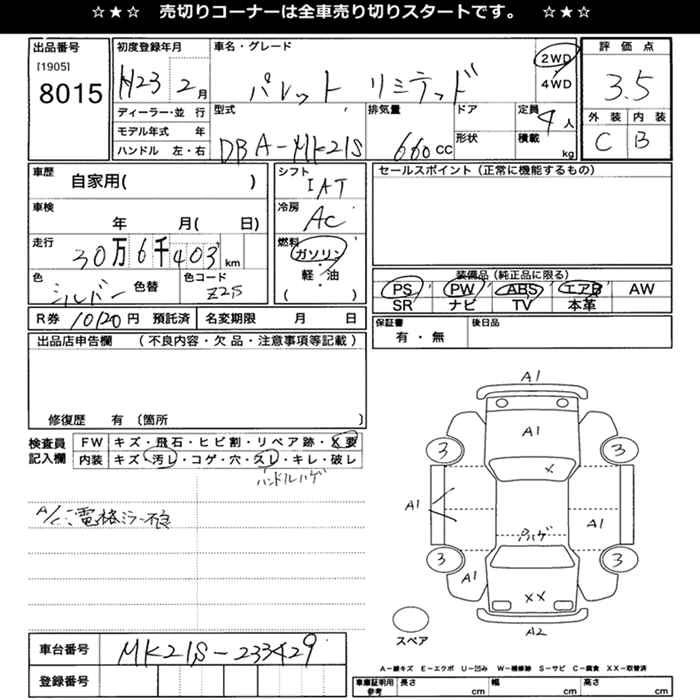 ☆★☆ 売切りコーナーは全車売り切りスタートです。 ☆★☆
出品番号
[1905]
8015
初度登録年月
H23 2月
ディーラー・並 行
モデル年式 年
ハンドル 左・右
車名・グレード
パレット リミテッド
2WD
4WD
型式
DBA-MK21S
排気量
660cc
ドア
形状
定員
4人
積載
kg
評価点
3.5
外装 内装
C B
車歴
自家用( )
車検
年 月( 日)
走行
30万6千403km
色
シルバー
色替
色コード
Z2S
シフト
IAT
冷房
AC
燃料
ガソリン
軽・油
( )
セールスポイント(正常に機能するもの)
装備品(純正品に限る)
PS PW ABS エアB AW
SR ナビ TV 本革
R券 10120円 預託済 名変期限 月 日
保証書
有・無
後日品
出品店申告欄 (不良内容・欠品・注意事項等記載)
修復歴 有 〔箇所 〕
検査員
記入欄
FW キズ・飛石・ヒビ割・リペア跡・X要
内装 キズ・汚レ・コゲ・穴・スレ・キレ・破レ
ハンドルハゲ
電格ミラー不良
A1
A1
3 3
A1 A1
ハゲ
3 3
A1
XX
A2
スペア
車台番号
MK21S-233429
登録番号
A−線キズ E−エクボ U−凹み W−補修跡 S−サビ C−腐食 XX−取替済
車庫証明用
参考
長さ cm 幅 cm 高さ cm